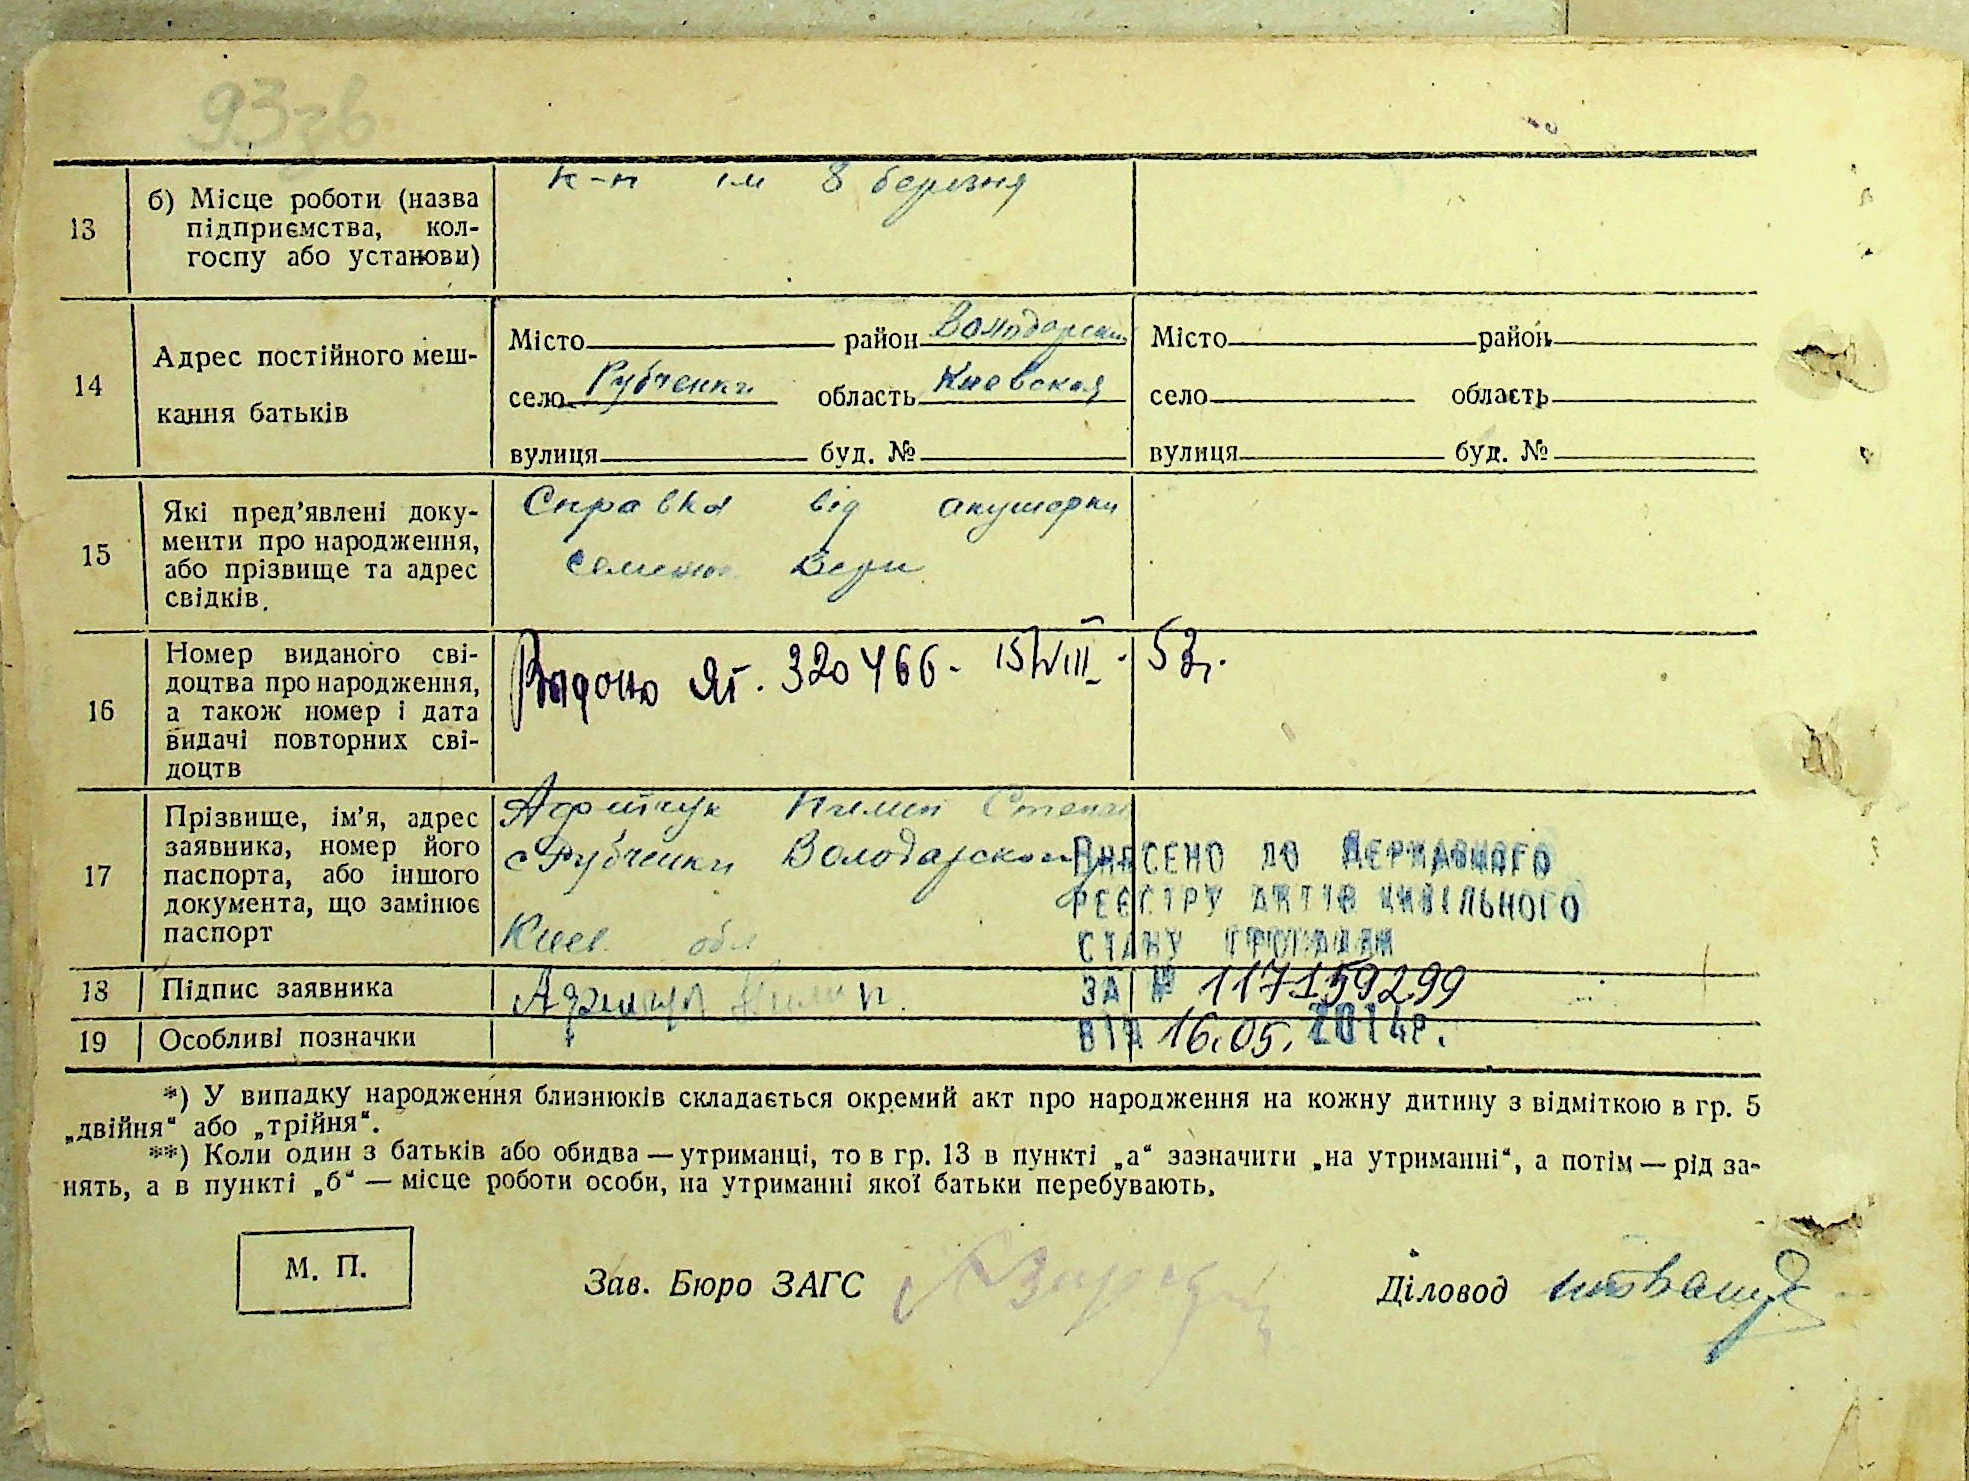 93зв
13
б) Місце роботи (назва
підприємства, кол-
госпу або установи)
к-п ім 8 березня
14
Адрес постійного меш-
кання батьків
Місто район Володарский
село Рубченки область Киевская
вулиця буд. №
Місто район
село область
вулиця буд. №
15
Які пред’явлені доку-
менти про народження,
або прізвище та адрес
свідків.
Справка від акушерки
Вери
16
Номер виданого сві-
доцтва про народження,
а також номер і дата
видачі повторних сві-
доцтв
ЯТ. 320466. 15/VIII. 53г.
17
Прізвище, ім’я, адрес
заявника, номер його
паспорта, або іншого
документа, що замінює
паспорт
Пилип
с Рубченки Володарского
Киев. обл
ВНЕСЕНО ДО ДЕРЖАВНОГО
РЕЄСТРУ АКТІВ ЦИВІЛЬНОГО
СТАНУ ГРОМАДЯН
ЗА № 117159299
ВІД 16.05.2014р.
18
Підпис заявника
19
Особливі позначки
*) У випадку народження близнюків складається окремий акт про народження на кожну дитину з відміткою в гр. 5
„двійня“ або „трійня“.
**) Коли один з батьків або обидва — утриманці, то в гр. 13 в пункті „а“ зазначити „на утриманні“, а потім — рід за-
нять, а в пункті „б“ — місце роботи особи, на утриманні якої батьки перебувають.
М. П.
Зав. Бюро ЗАГС
Діловод